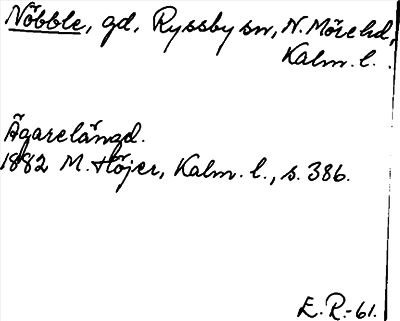 Nöbble, gd, Ryssby sn, N. Möre hd,
Kalm. l.
Ägarelängd.
1882 M. Höjer, Kalm. l., s. 386.
E. R.-61.